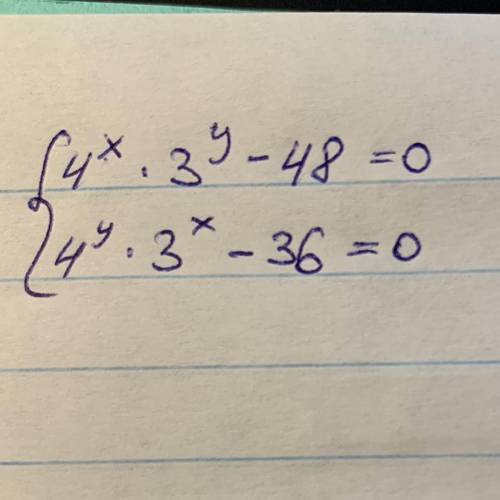 4^x · 3^y - 48 = 0
4^y · 3^x - 36 = 0